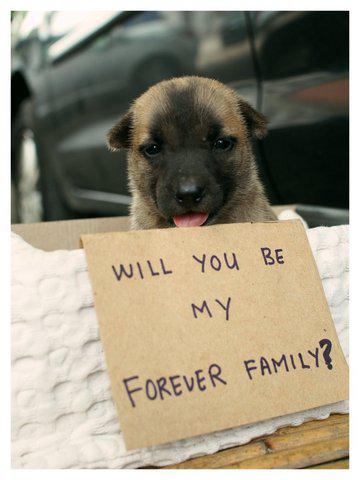 WILL YOU BE
MY
FOREVER FAMILY?